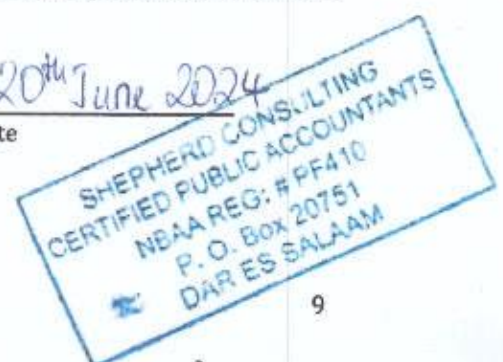 20th June 2024
te
SHEPHERD CONSULTING
CERTIFIED PUBLIC ACCOUNTANTS
NBAA REG: # PF410
P. O. Box 20751
DAR ES SALAAM
9